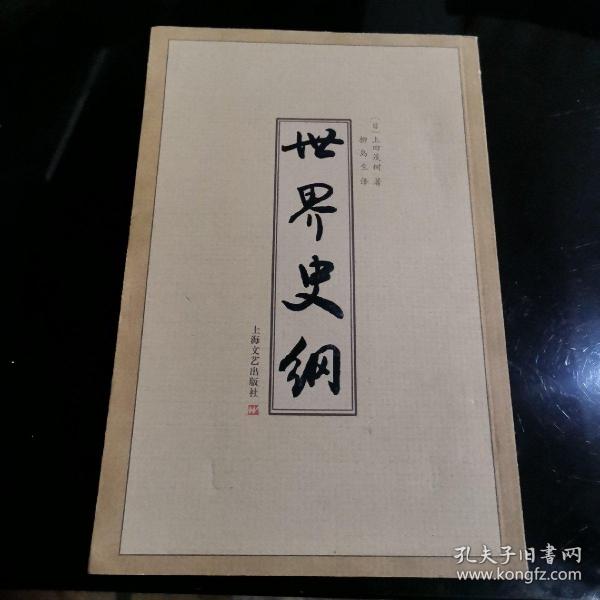 〔日〕上田茂树 著
柳岛生 译
世界史纲
上海文艺出版社
孔夫子旧书网
www.kongfz.com